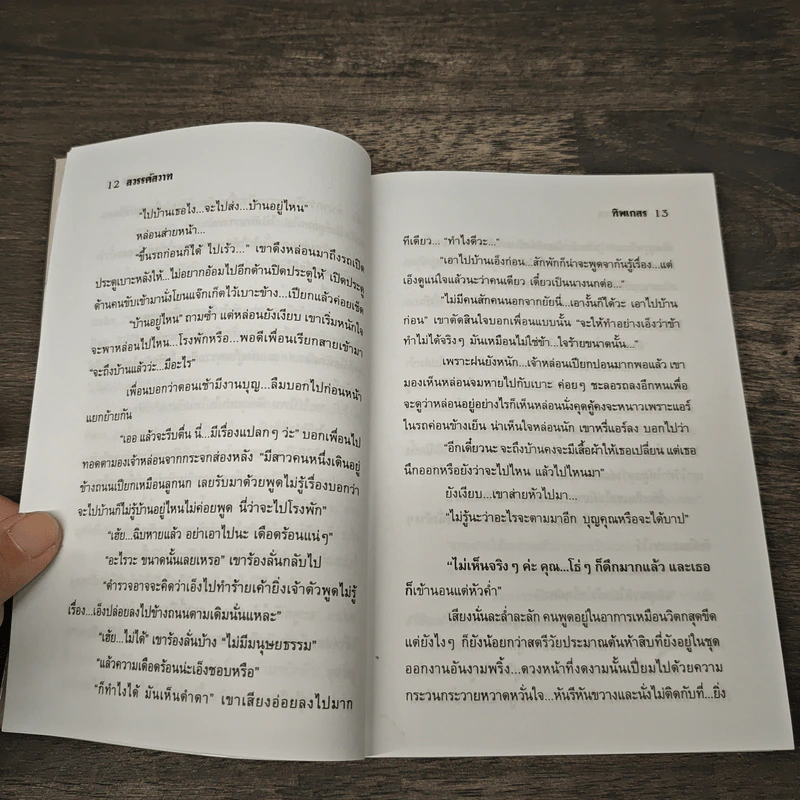 12 สวรรค์สวาท
“ไปบ้านเธอไง...จะไปส่ง...บ้านอยู่ไหน”
หล่อนส่ายหน้า...
“ขึ้นรถก่อนก็ได้ ไปเร้ว...” เขาดึงหล่อนมาถึงรถเปิด
ประตูเบาะหลังให้...ไม่อยากอ้อมไปอีกด้านปิดประตูให้ เปิดประตู
ด้านคนขับเข้ามานั่งโยนแจ็กเก็ตไว้เบาะข้าง...เปียกแล้วค่อยเช็ด
“บ้านอยู่ไหน” ถามซ้ำ แต่หล่อนยังเงียบ เขาเริ่มหนักใจ
จะพาหล่อนไปไหน...โรงพักหรือ...พอดีเพื่อนเรียกสายเข้ามา
“จะถึงบ้านแล้วว่ะ...มีอะไร”
เพื่อนบอกว่าตอนเช้ามีงานบุญ...ลืมบอกไปก่อนหน้า
แยกย้ายกัน
“เออ แล้วจะรีบตื่น นี่...มีเรื่องแปลกๆ ว่ะ” บอกเพื่อนไป
ทอดตามองเจ้าหล่อนจากกระจกส่องหลัง “มีสาวคนหนึ่งเดินอยู่
ข้างถนนเปียกเหมือนลูกนก เลยรับมาด้วยพูดไม่รู้เรื่องบอกว่า
จะไปบ้านก็ไม่รู้บ้านอยู่ไหนไม่ค่อยพูด นี่ว่าจะไปโรงพัก”
“เฮ้ย...ฉิบหายแล้ว อย่าเอาไปนะ เดือดร้อนแน่ๆ”
“อะไรวะ ขนาดนั้นเลยเหรอ” เขาร้องลั่นกลับไป
“ตำรวจอาจจะคิดว่าเอ็งไปทำร้ายเค้ายิ่งเจ้าตัวพูดไม่รู้
เรื่อง...เอ็งปล่อยลงไปข้างถนนตามเดิมนั่นแหละ”
“เฮ้ย...ไม่ได้” เขาร้องลั่นบ้าง “ไม่มีมนุษยธรรม”
“แล้วความเดือดร้อนน่ะเอ็งชอบหรือ”
“ก็ทำไงได้ มันเห็นตำตา” เขาเสียงอ่อยลงไปมาก
ทิพเกสร 13
ทีเดียว... “ทำไงดีวะ...”
“เอาไปบ้านเอ็งก่อน...สักพักก็น่าจะพูดจากันรู้เรื่อง...แต่
เอ็งดูแน่ใจแล้วนะว่าคนเดียว เดี๋ยวเป็นนางนกต่อ...”
“ไม่มีคนสักคนนอกจากยัยนี่...เอางั้นก็ได้วะ เอาไปบ้าน
ก่อน” เขาตัดสินใจบอกเพื่อนแบบนั้น “จะให้ทำอย่างเอ็งว่าข้า
ทำไม่ได้จริงๆ มันเหมือนไม่ใช่ข้า...ใจร้ายขนาดนั้น...”
เพราะฝนยังหนัก...เจ้าหล่อนเปียกปอนมากพอแล้ว เขา
มองเห็นหล่อนจมหายไปกับเบาะ ค่อยๆ ชะลอรถลงอีกหนเพื่อ
จะดูว่าหล่อนอยู่อย่างไรก็เห็นหล่อนนั่งคุดคู้คงจะหนาวเพราะแอร์
ในรถค่อนข้างเย็น น่าเห็นใจหล่อนนัก เขาหรี่แอร์ลง บอกไปว่า
“อีกเดี๋ยวนะ จะถึงบ้านคงจะมีเสื้อผ้าให้เธอเปลี่ยน แต่เธอ
นึกออกหรือยังว่าจะไปไหน แล้วไปไหนมา”
ยังเงียบ...เขาส่ายหัวไปมา...
“ไม่รู้นะว่าอะไรจะตามมาอีก บุญคุณหรือจะได้บาป”
“ไม่เห็นจริงๆ ค่ะ คุณ...โธ่ๆ ก็ดึกมากแล้ว และเธอ
ก็เข้านอนแต่หัวค่ำ”
เสียงนั่นละล่ำละลัก คนพูดอยู่ในอาการเหมือนวิตกสุดขีด
แต่ยังไงๆ ก็ยังน้อยกว่าสตรีวัยประมาณต้นห้าสิบที่ยังอยู่ในชุด
ออกงานอันงามพริ้ง...ดวงหน้าที่งดงามนั้นเปี่ยมไปด้วยความ
กระวนกระวายหวาดหวั่นใจ...หันรีหันขวางและนั่งไม่ติดกับที่...ยิ่ง